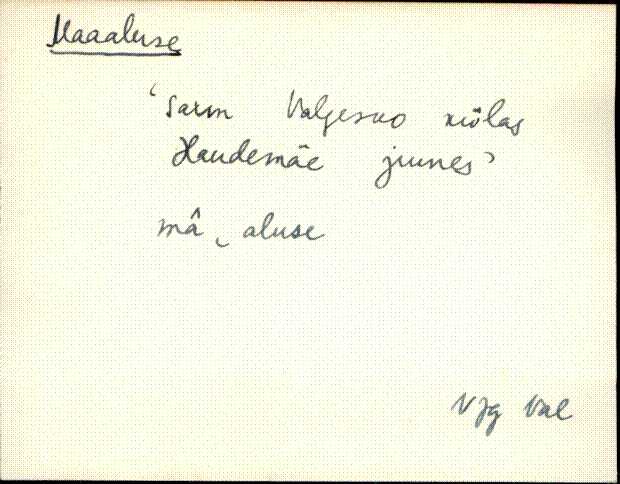 Maaaluse
‘saun Valgesoo külas
Haudemäe juures’
mâ‿aluse
Val